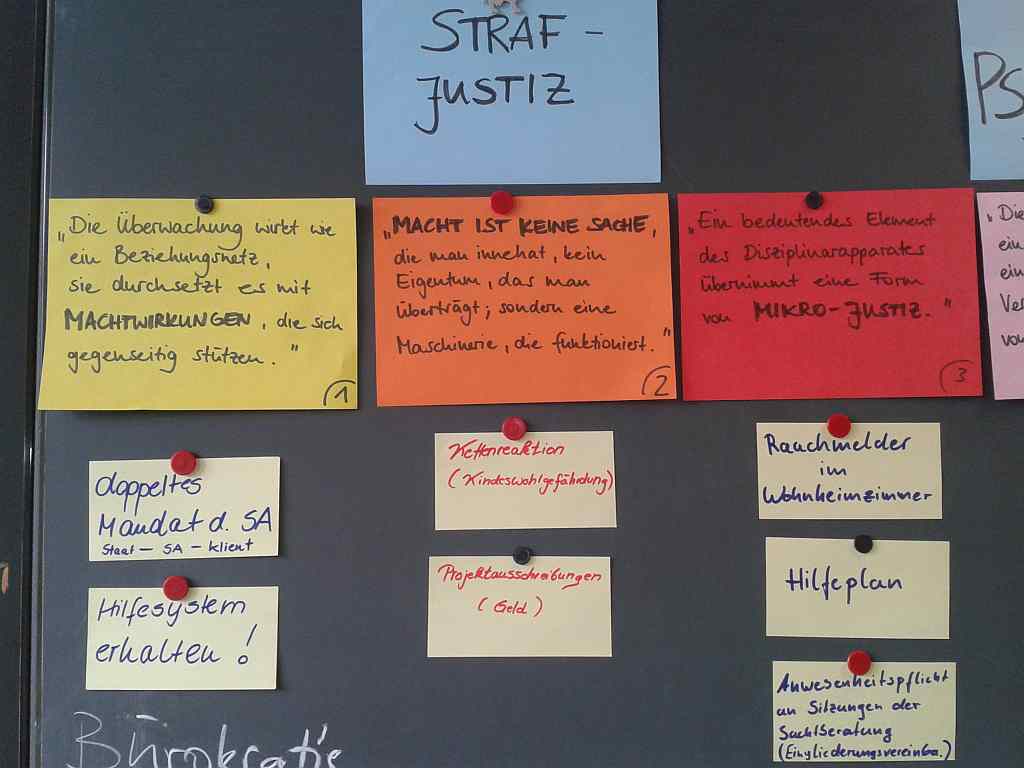 STRAF-
JUSTIZ
PS
„Die Überwachung wirkt wie
ein Beziehungsnetz,
sie durchsetzt es mit
MACHTWIRKUNGEN, die sich
gegenseitig stützen."
1
„MACHT IST KEINE SACHE,
die man innehat, kein
Eigentum, das man
überträgt; sondern eine
Maschinerie, die funktioniert."
2
„Ein bedeutendes Element
des Disziplinarapparates
übernimmt eine Form
von MIKRO-JUSTIZ."
3
„Die
ein
ein
Ver
vo
doppeltes
Mandat d. SA
Staat – SA – Klient
Hilfesystem
erhalten!
Kettenreaktion
(Kindeswohlgefährdung)
Projektausschreibungen
(Geld)
Rauchmelder
im
Wohnheimzimmer
Hilfeplan
Anwesenheitspflicht
an Sitzungen der
Suchtberatung
(Eingliederungsvereinba.)
Bürokratie